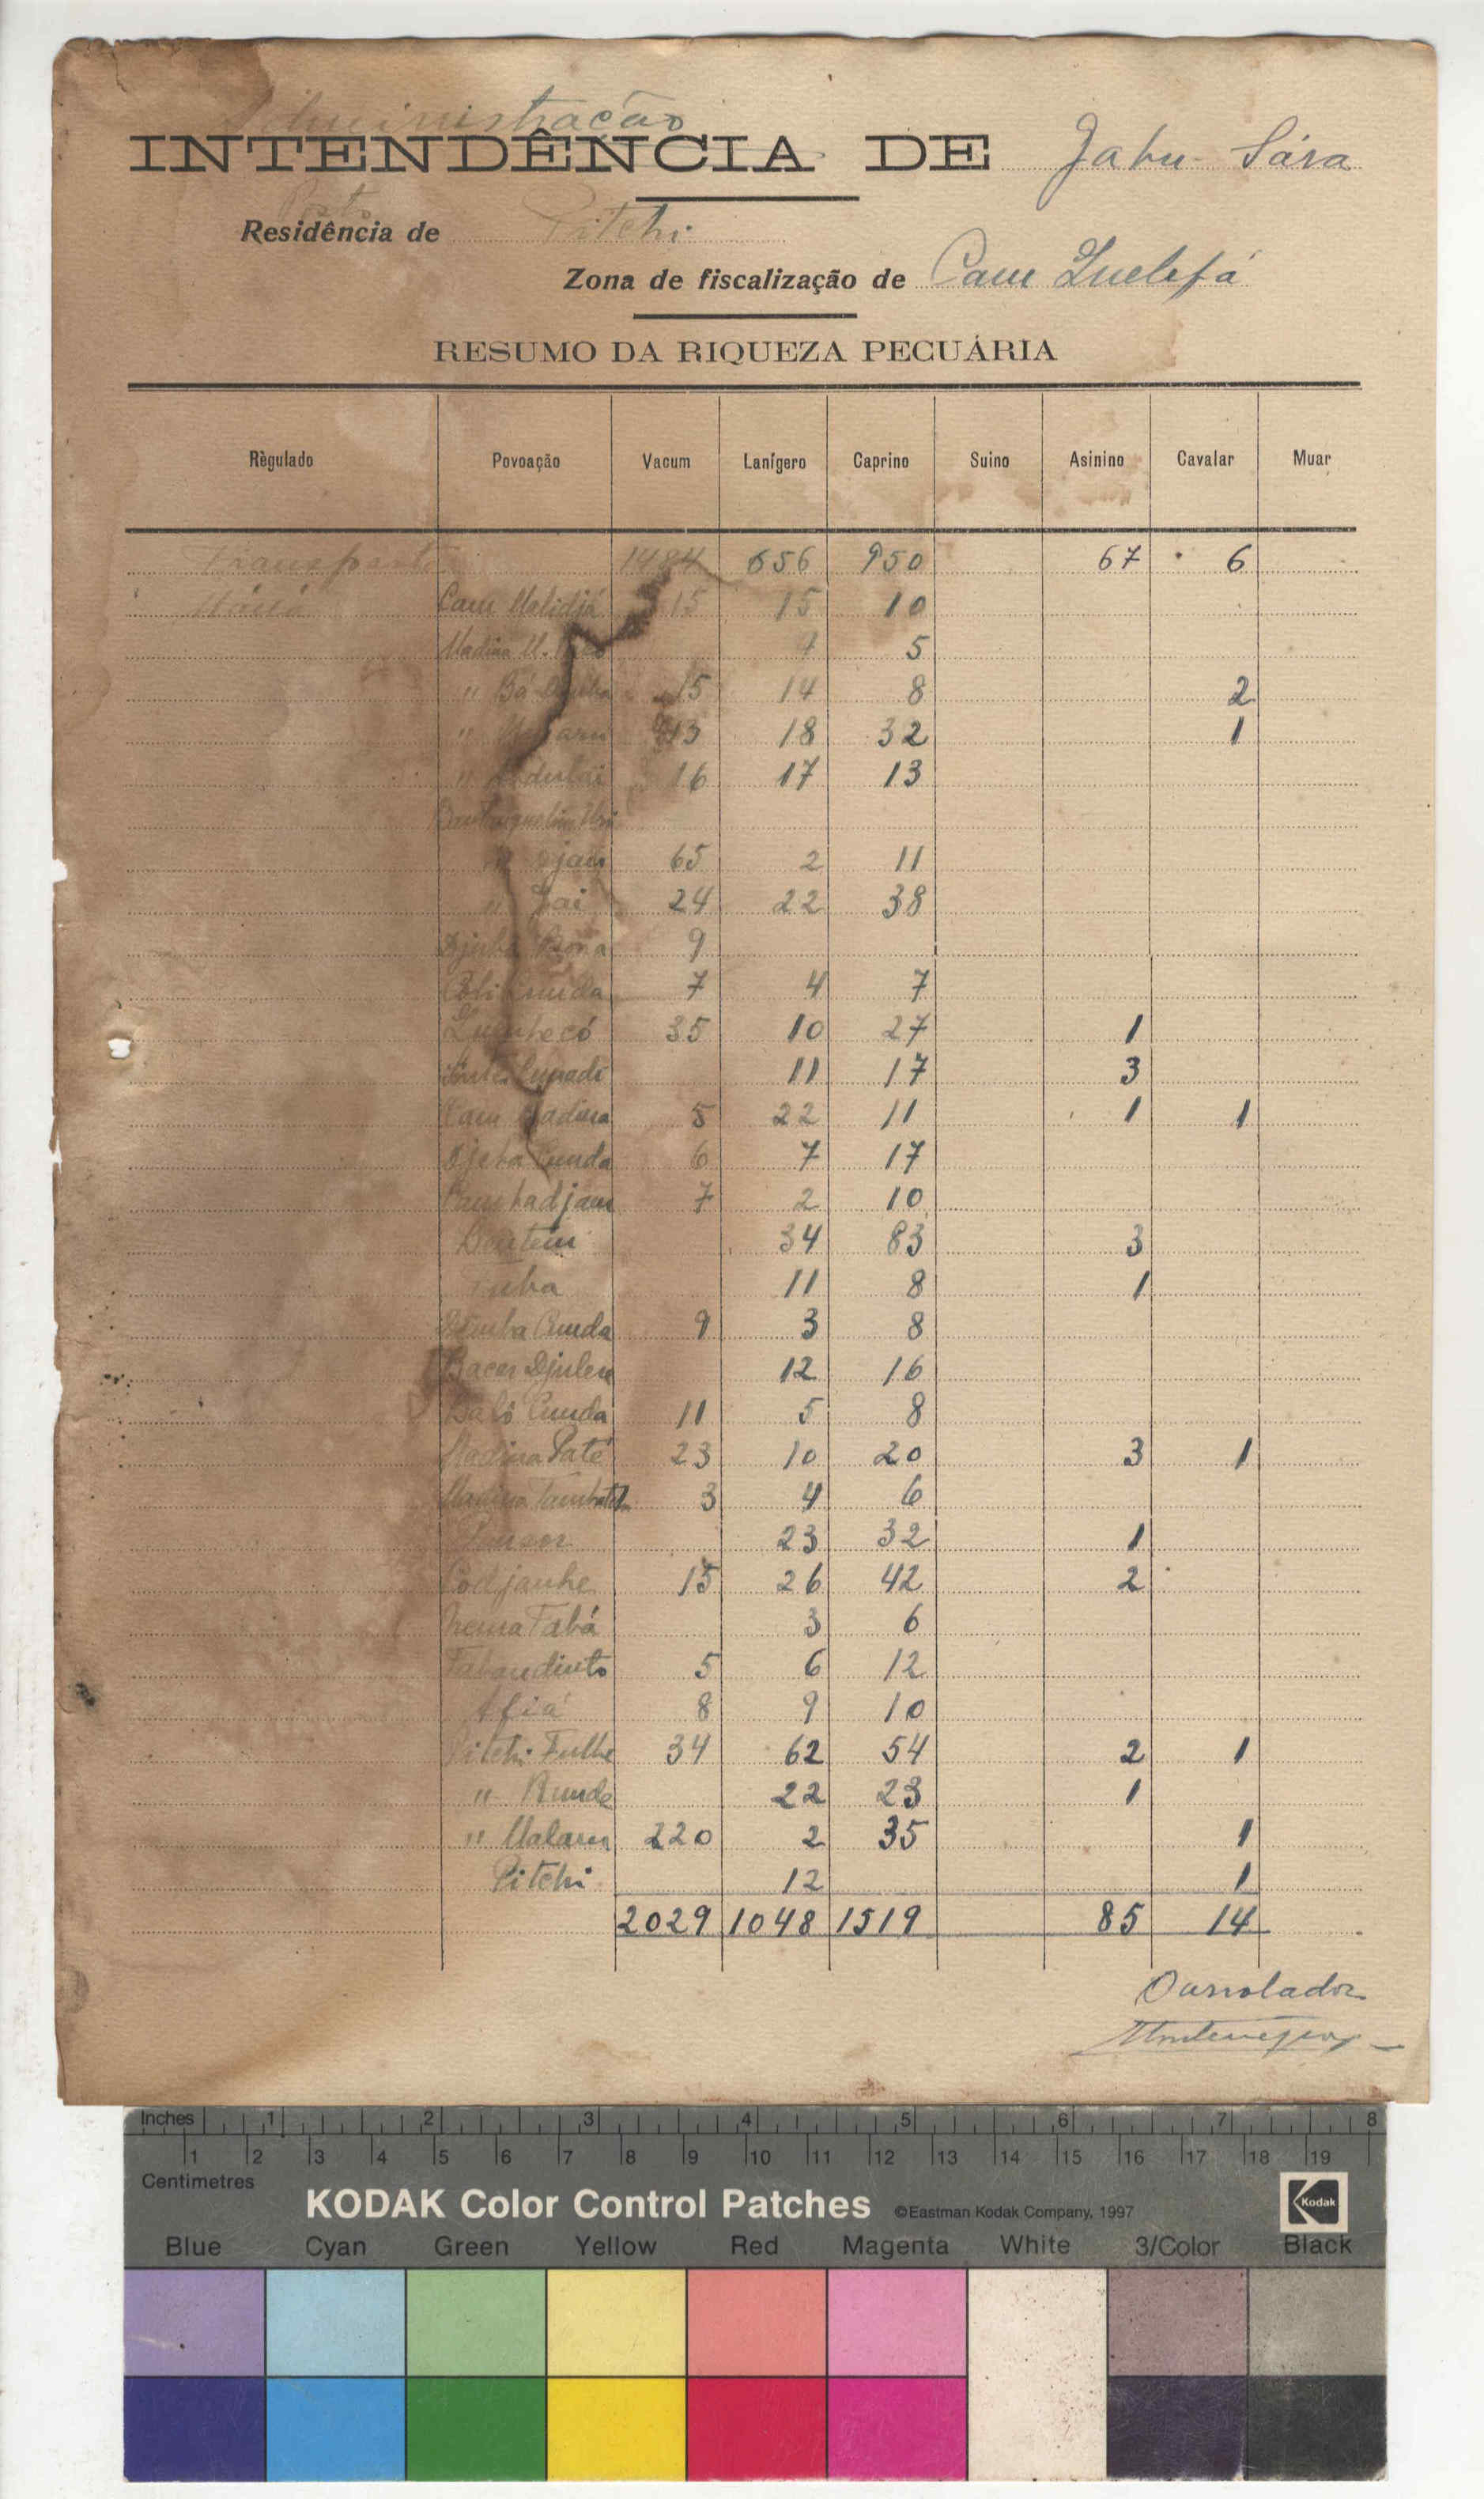 Administração
INTENDÊNCIA DE Gabu-Sára
Posto
Residência de Pitchi
Zona de fiscalização de Cam Quelefá
RESUMO DA RIQUEZA PECUÁRIA
Règulado Povoação Vacum Lanígero Caprino Suino Asinino Cavalar Muar
Transporte 1484 656 950 67 6
Maná Cam Malidjá 15 15 10
Madina 9 5
" 15 14 8 2
" 13 18 32 1
" 16 17 13

" Djam 65 2 11
" 24 22 38
9
Cunda 7 4 7
35 10 27 1
11 17 3
Cam Madina 5 22 11 1 1
Djeba Cunda 6 7 17
Cambadjam 7 2 10
Bentém 34 83 3
Tuba 11 8 1
Demba Cunda 9 3 8
Bacar Djulem 12 16
Baló Cunda 11 5 8
Madina Paté 23 10 20 3 1
Madina 3 4 6
23 32 1
Codjanhe 15 26 42 2
Nema Tabá 3 6
Tabandinto 5 6 12
Afiá 8 9 10
Pitchi Fulbe 34 62 54 2 1
" Runde 22 23 1
" Malam 220 2 35 1
Pitchi 12 1
2029 1048 1519 85 14
O arrolador
Montenegro
Inches 1 2 3 4 5 6 7 8
1 2 3 4 5 6 7 8 9 10 11 12 13 14 15 16 17 18 19
Centimetres
KODAK Color Control Patches ©Eastman Kodak Company, 1997 Kodak
Blue Cyan Green Yellow Red Magenta White 3/Color Black